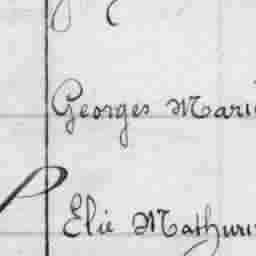 Georges Mari
Elie Mathuri